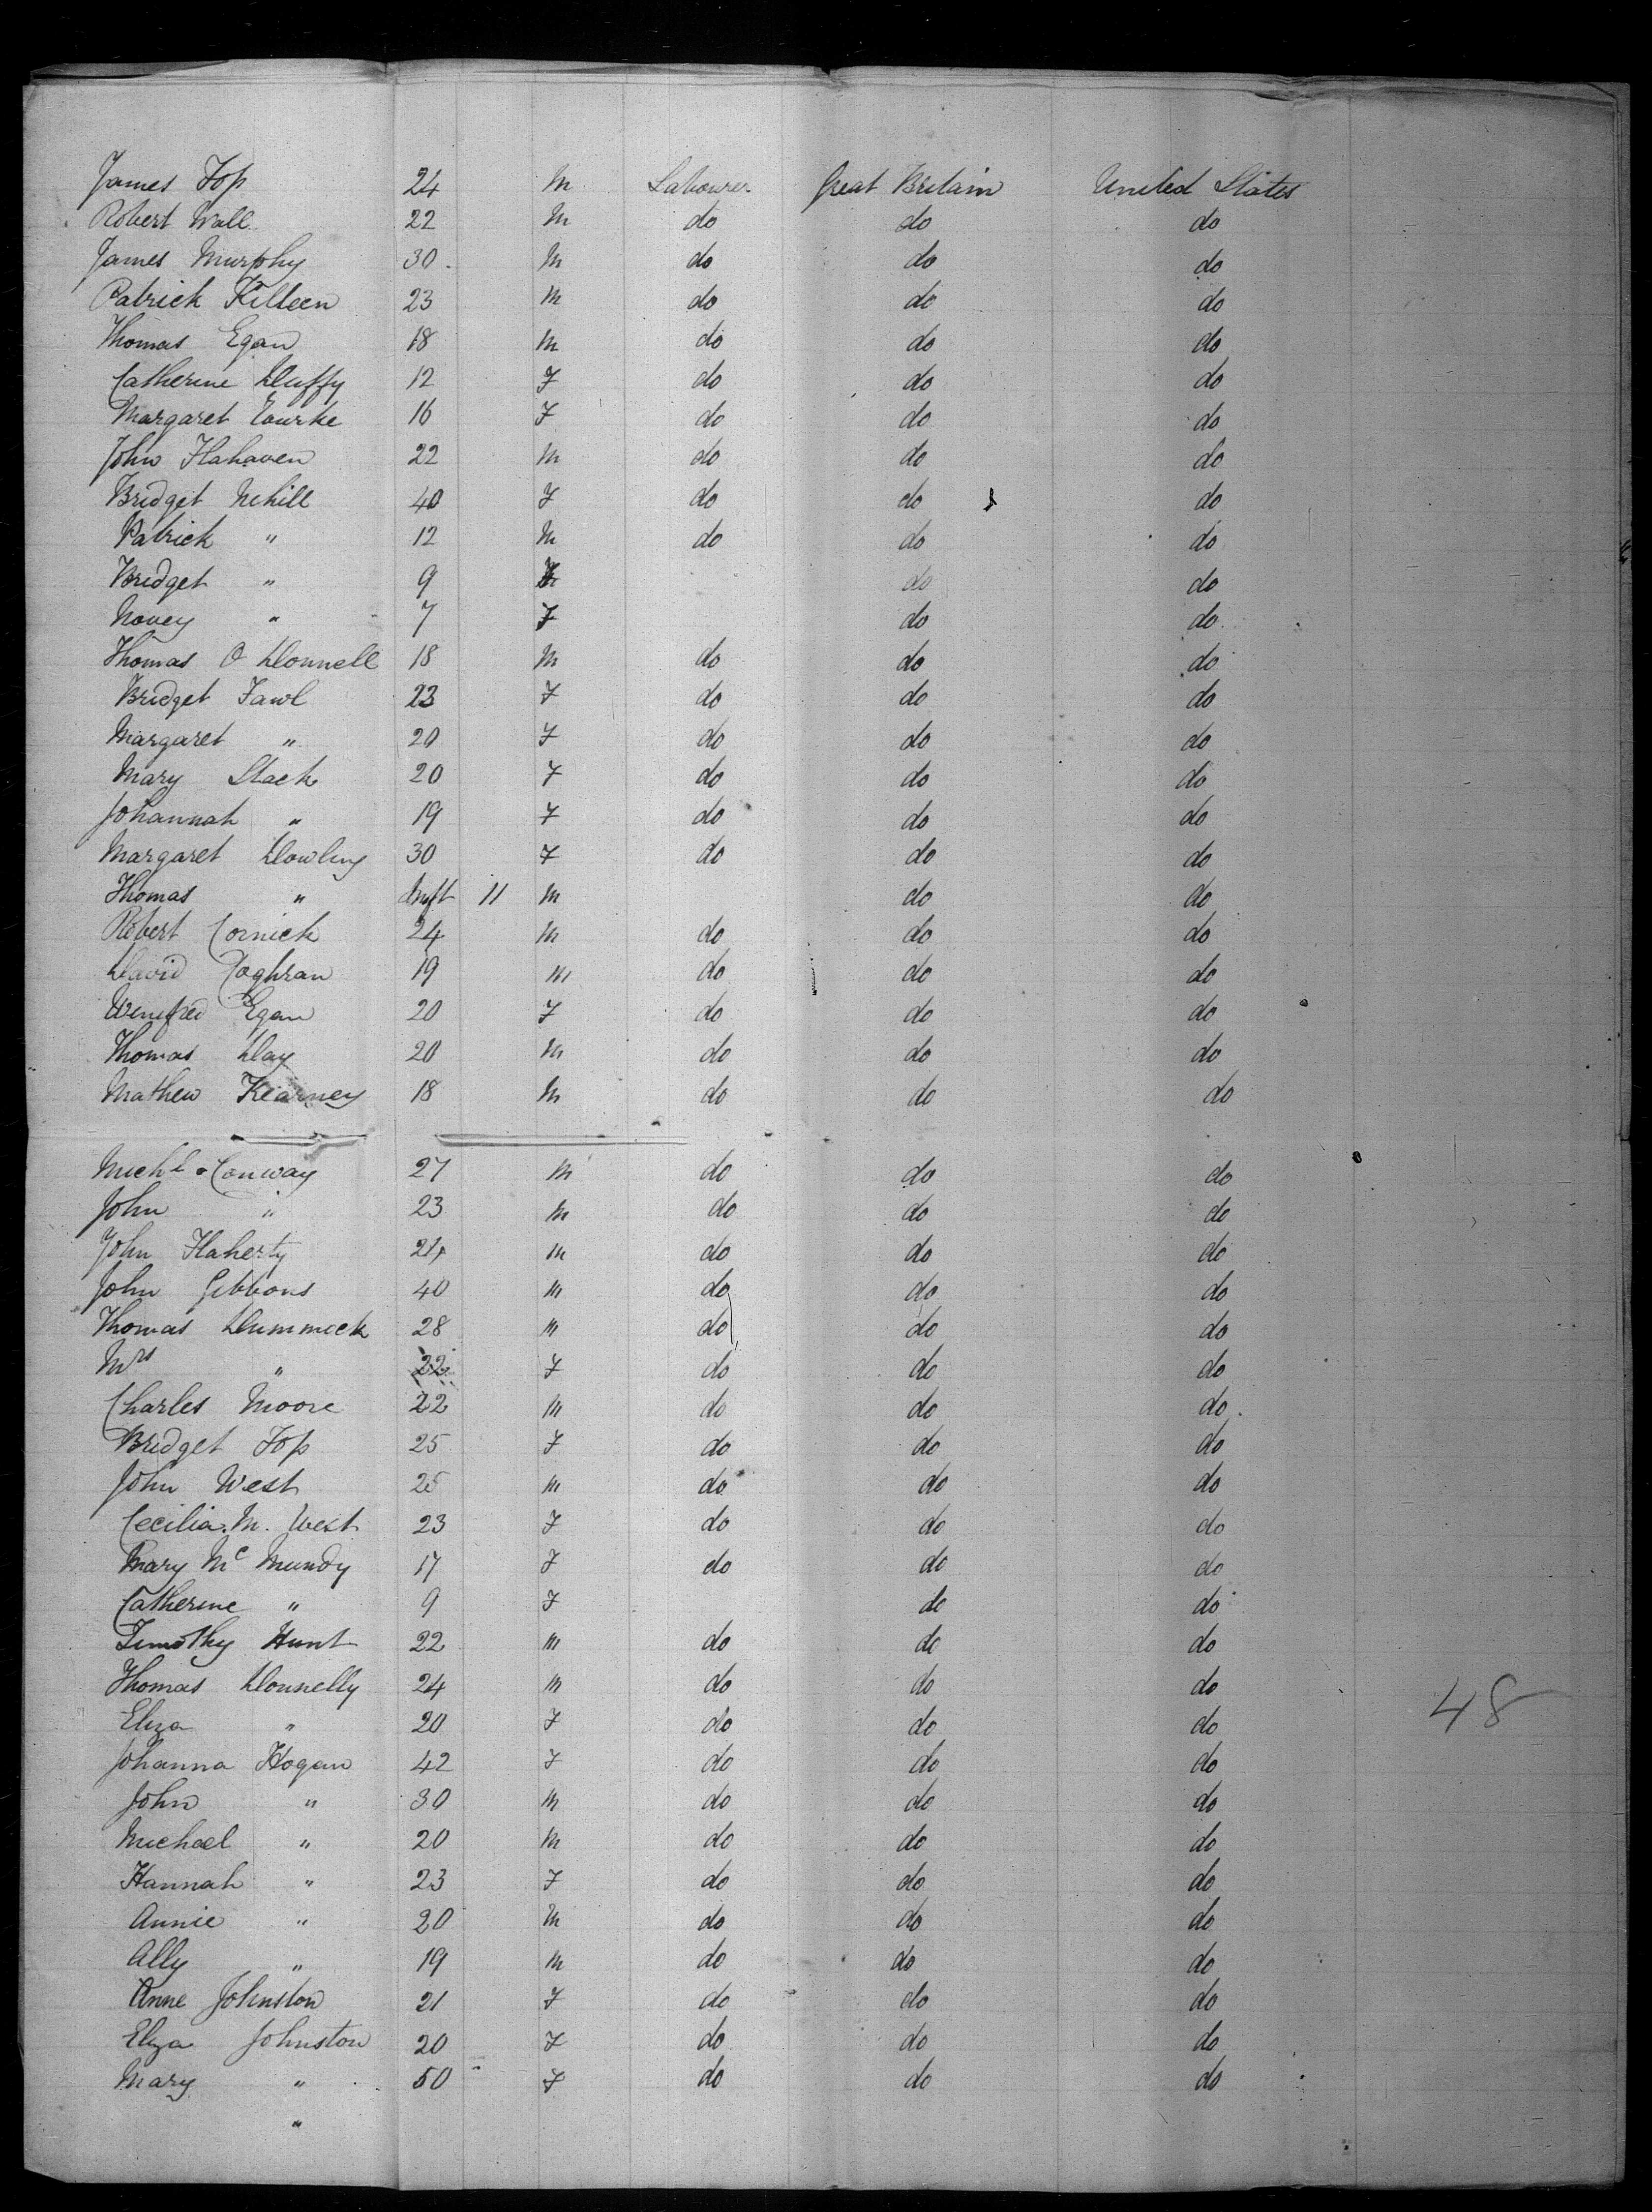 James Fop 24 M Labourer Great Britain United States
Robert Wall 22 M do do do
James Murphy 30 M do do do
Patrick Killeen 23 M do do do
Thomas Egan 18 M do do do
Catherine Duffy 12 F do do do
Margaret Rourke 16 F do do do
John Flahaven 22 M do do do
Bridget Nehill 40 F do do do
Patrick " 12 M do do do
Bridget " 9 F do do
Novey " 7 F do do
Thomas O Donnell 18 M do do do
Bridget Fawl 23 F do do do
Margaret " 20 F do do do
Mary Slack 20 F do do do
Johannah " 19 F do do do
Margaret Dowling 30 F do do do
Thomas " Inft 11 M do do
Robert Cornick 24 M do do do
David Coghran 19 M do do do
Winifred Egan 20 F do do do
Thomas Day 20 M do do do
Mathew Kearney 18 M do do do
Michl Conway 27 M do do do
John " 23 M do do do
John Flaherty 24 M do do do
John Gibbons 40 M do do do
Thomas Dummock 28 M do do do
Mrs " 22 F do do do
Charles Moore 22 M do do do
Bridget Fop 25 F do do do
John West 25 M do do do
Cecilia M. West 23 F do do do
Mary Mc Mundy 17 F do do do
Catherine " 9 F do do
Timothy Hunt 22 M do do do
Thomas Donnelly 24 M do do do
Eliza " 20 F do do do
48
Johanna Hogan 42 F do do do
John " 30 M do do do
Michael " 20 M do do do
Hannah " 23 F do do do
Annie " 20 M do do do
Ally " 19 M do do do
Anne Johnston 21 F do do do
Eliza Johnston 20 F do do do
Mary " 50 F do do do
"